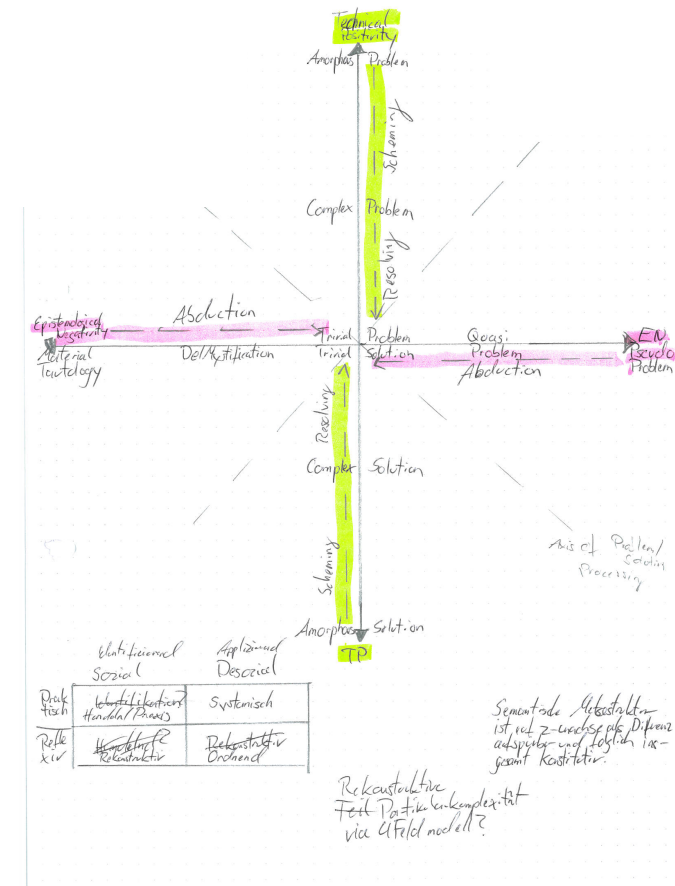 Technical
Positivity
Amorphos Problem
Scheming
Complex Problem
Resolving
Abduction
Epistemological
Negativity
Trivial Problem
Quasi
EN
Material
De/Mystification
Trivial Solution
Problem
Pseudo
Tautology
Abduction
Problem
Resolving
Complex Solution
Scheming
Axis of Problem/
Solution
Processing
Amorphos Solution
TP
Identifizierend
Applizierend
Sozial
Desozial
Prak
tisch
Identifikation
Handeln/Praxis
Systemisch
Refle
xiv
Rekonstruktiv
Rekonstruktiv
Ordnend
Semantische Metastruktur
ist auf z-achse als Differenz
aufspürbar und folglich ins-
gesamt Konstitutiv.
Rekonstruktive
Partikularkomplexität
via 4Feld modell?